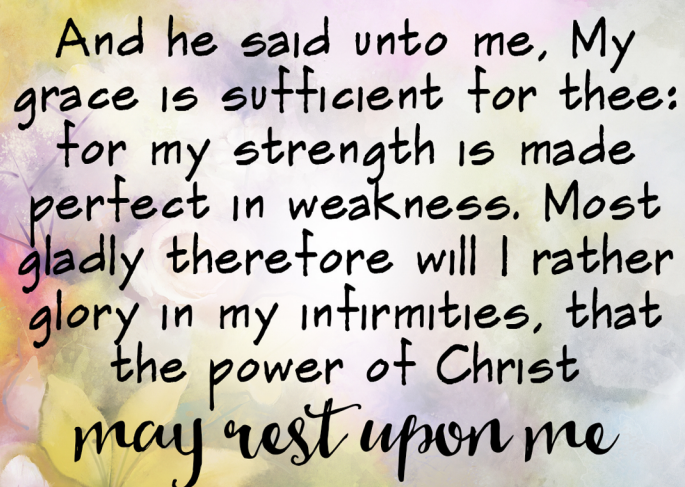 And he said unto me, My
grace is sufficient for thee:
for my strength is made
perfect in weakness. Most
gladly therefore will I rather
glory in my infirmities, that
the power of Christ
may rest upon me